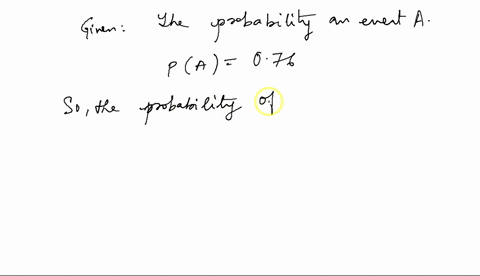 Given: The probability an event A.
P(A) = 0.76
So, the probability of